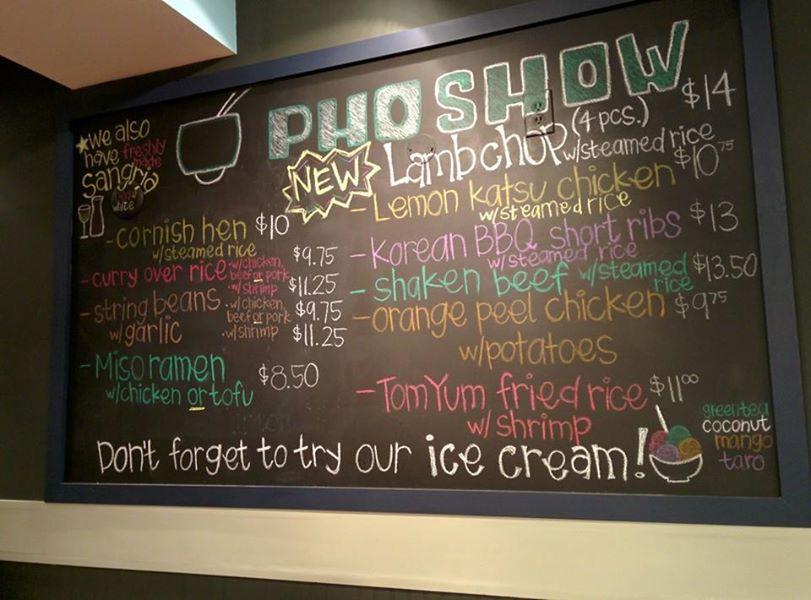 PHO SHOW
★we also
have freshly
made
sangria
red
white
NEW
Lamb chop (4 pcs.) $14
w/steamed rice
-cornish hen $10
w/steamed rice
-curry over rice w/chicken, $9.75
beef or pork
w/shrimp $11.25
-string beans w/chicken, $9.75
w/garlic beef or pork
w/shrimp $11.25
-Miso ramen $8.50
w/chicken or tofu
-Lemon katsu chicken $10.75
w/steamed rice
-Korean BBQ short ribs $13
w/steamed rice
-shaken beef w/steamed $13.50
rice
-orange peel chicken $9.75
w/potatoes
-Tom Yum fried rice $11.00
w/shrimp
Don't forget to try our ice cream!
green tea
coconut
mango
taro